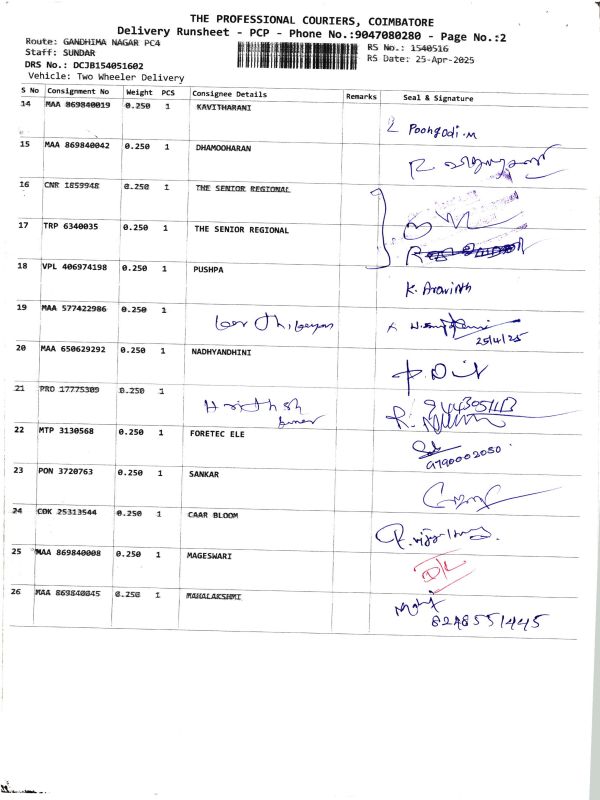 THE PROFESSIONAL COURIERS, COIMBATORE
Delivery Runsheet - PCP - Phone No.:9047080280 - Page No.:2
Route: GANDHIMA NAGAR PC4
RS No.: 1540516
Staff: SUNDAR
RS Date: 25-Apr-2025
DRS No.: DCJB154051602
Vehicle: Two Wheeler Delivery
S No Consignment No Weight PCS Consignee Details Remarks Seal & Signature
14 MAA 869840019 0.250 1 KAVITHARANI
Poongodi.m
15 MAA 869840042 0.250 1 DHAMOOHARAN
16 CNR 1859948 0.250 1 THE SENIOR REGIONAL
17 TRP 6340035 0.250 1 THE SENIOR REGIONAL
18 VPL 406974198 0.250 1 PUSHPA
K. Aravinth
19 MAA 577422986 0.250 1
25/4/25
20 MAA 650629292 0.250 1 NADHYANDHINI
21 PRO 17775309 0.250 1
Harithsh
22 MTP 3130568 0.250 1 FORETEC ELE
9790002050
23 PON 3720763 0.250 1 SANKAR
24 COK 25313544 0.250 1 CAAR BLOOM
25 MAA 869840008 0.250 1 MAGESWARI
D/L
26 MAA 869840045 0.250 1 MAHALAKSHMI
8248551445